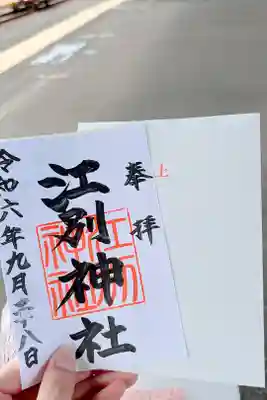 奉拝
江別神社
令和六年九月二十八日